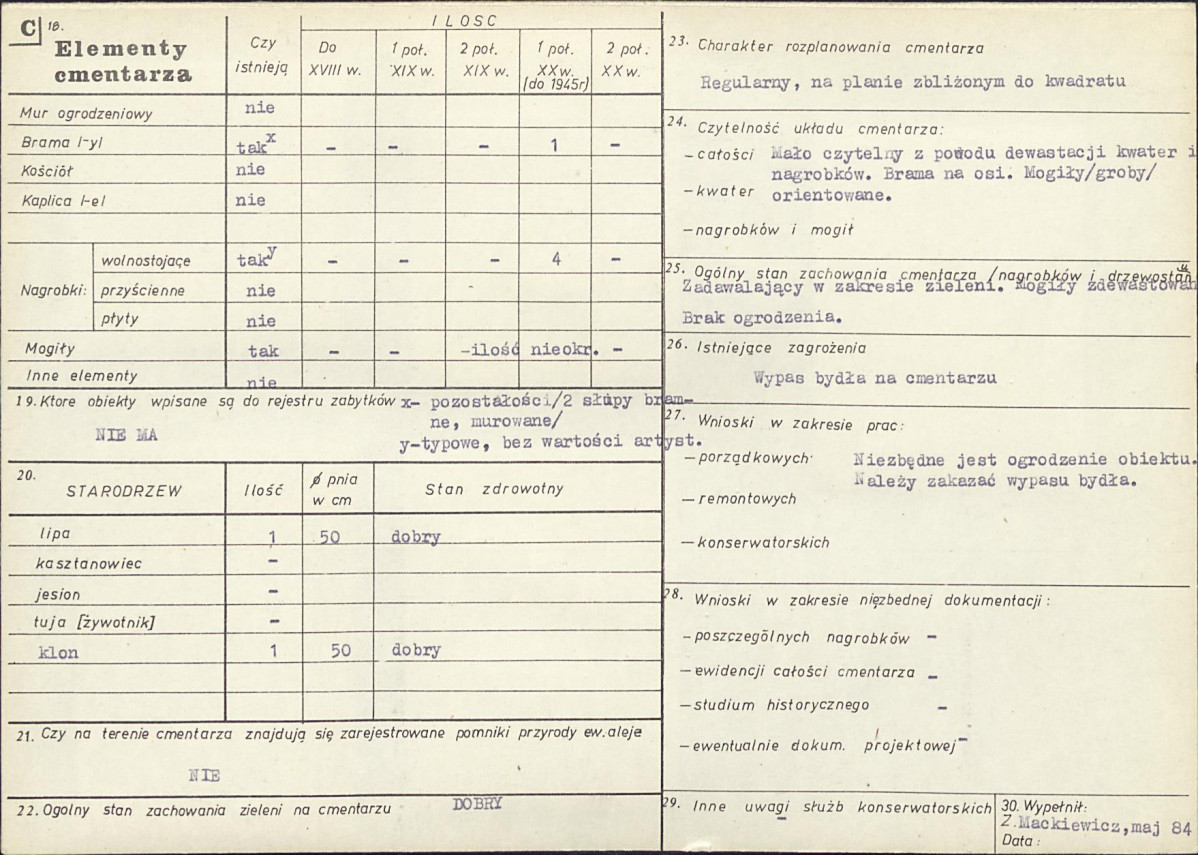 C 18.
Elementy cmentarza
Czy istnieją
ILOSC
Do XVIII w.
1 poł. XIX w.
2 poł. XIX w.
1 poł. XX w. (do 1945r)
2 poł. XX w.
Mur ogrodzeniowy nie
Brama /-y/ tak x - - - 1 -
Kościół nie
Kaplica /-e/ nie
Nagrobki:
wolnostojące tak y - - - 4 -
przyścienne nie
płyty nie
Mogiły tak - - -ilość nieokr. -
Inne elementy nie
19. Ktore obiekty wpisane są do rejestru zabytków
NIE MA
x- pozostałości/2 słupy bram-
ne, murowane/
y-typowe, bez wartości artyst.
20. STARODRZEW Ilość ø pnia w cm Stan zdrowotny
lipa 1 50 dobry
kasztanowiec -
jesion -
tuja [żywotnik] -
klon 1 50 dobry
21. Czy na terenie cmentarza znajdują się zarejestrowane pomniki przyrody ew. aleje
NIE
22. Ogolny stan zachowania zieleni na cmentarzu DOBRY
23. Charakter rozplanowania cmentarza
Regularny, na planie zbliżonym do kwadratu
24. Czytelność układu cmentarza:
- całości Mało czytelny z powodu dewastacji kwater i
nagrobków. Brama na osi. Mogiły/groby/
- kwater orientowane.
- nagrobków i mogił
25. Ogólny stan zachowania cmentarza /nagrobków i drzewostan
Zadawalający w zakresie zieleni. Mogiły zdewastowan
Brak ogrodzenia.
26. Istniejące zagrożenia
Wypas bydła na cmentarzu
27. Wnioski w zakresie prac:
- porządkowych Niezbędne jest ogrodzenie obiektu.
Należy zakazać wypasu bydła.
- remontowych
- konserwatorskich
28. Wnioski w zakresie nięzbednej dokumentacji:
- poszczególnych nagrobków -
- ewidencji całości cmentarza -
- studium historycznego -
- ewentualnie dokum. projektowej -
29. Inne uwagi służb konserwatorskich
-
30. Wypełnił:
Z.Mackiewicz, maj 84
Data: